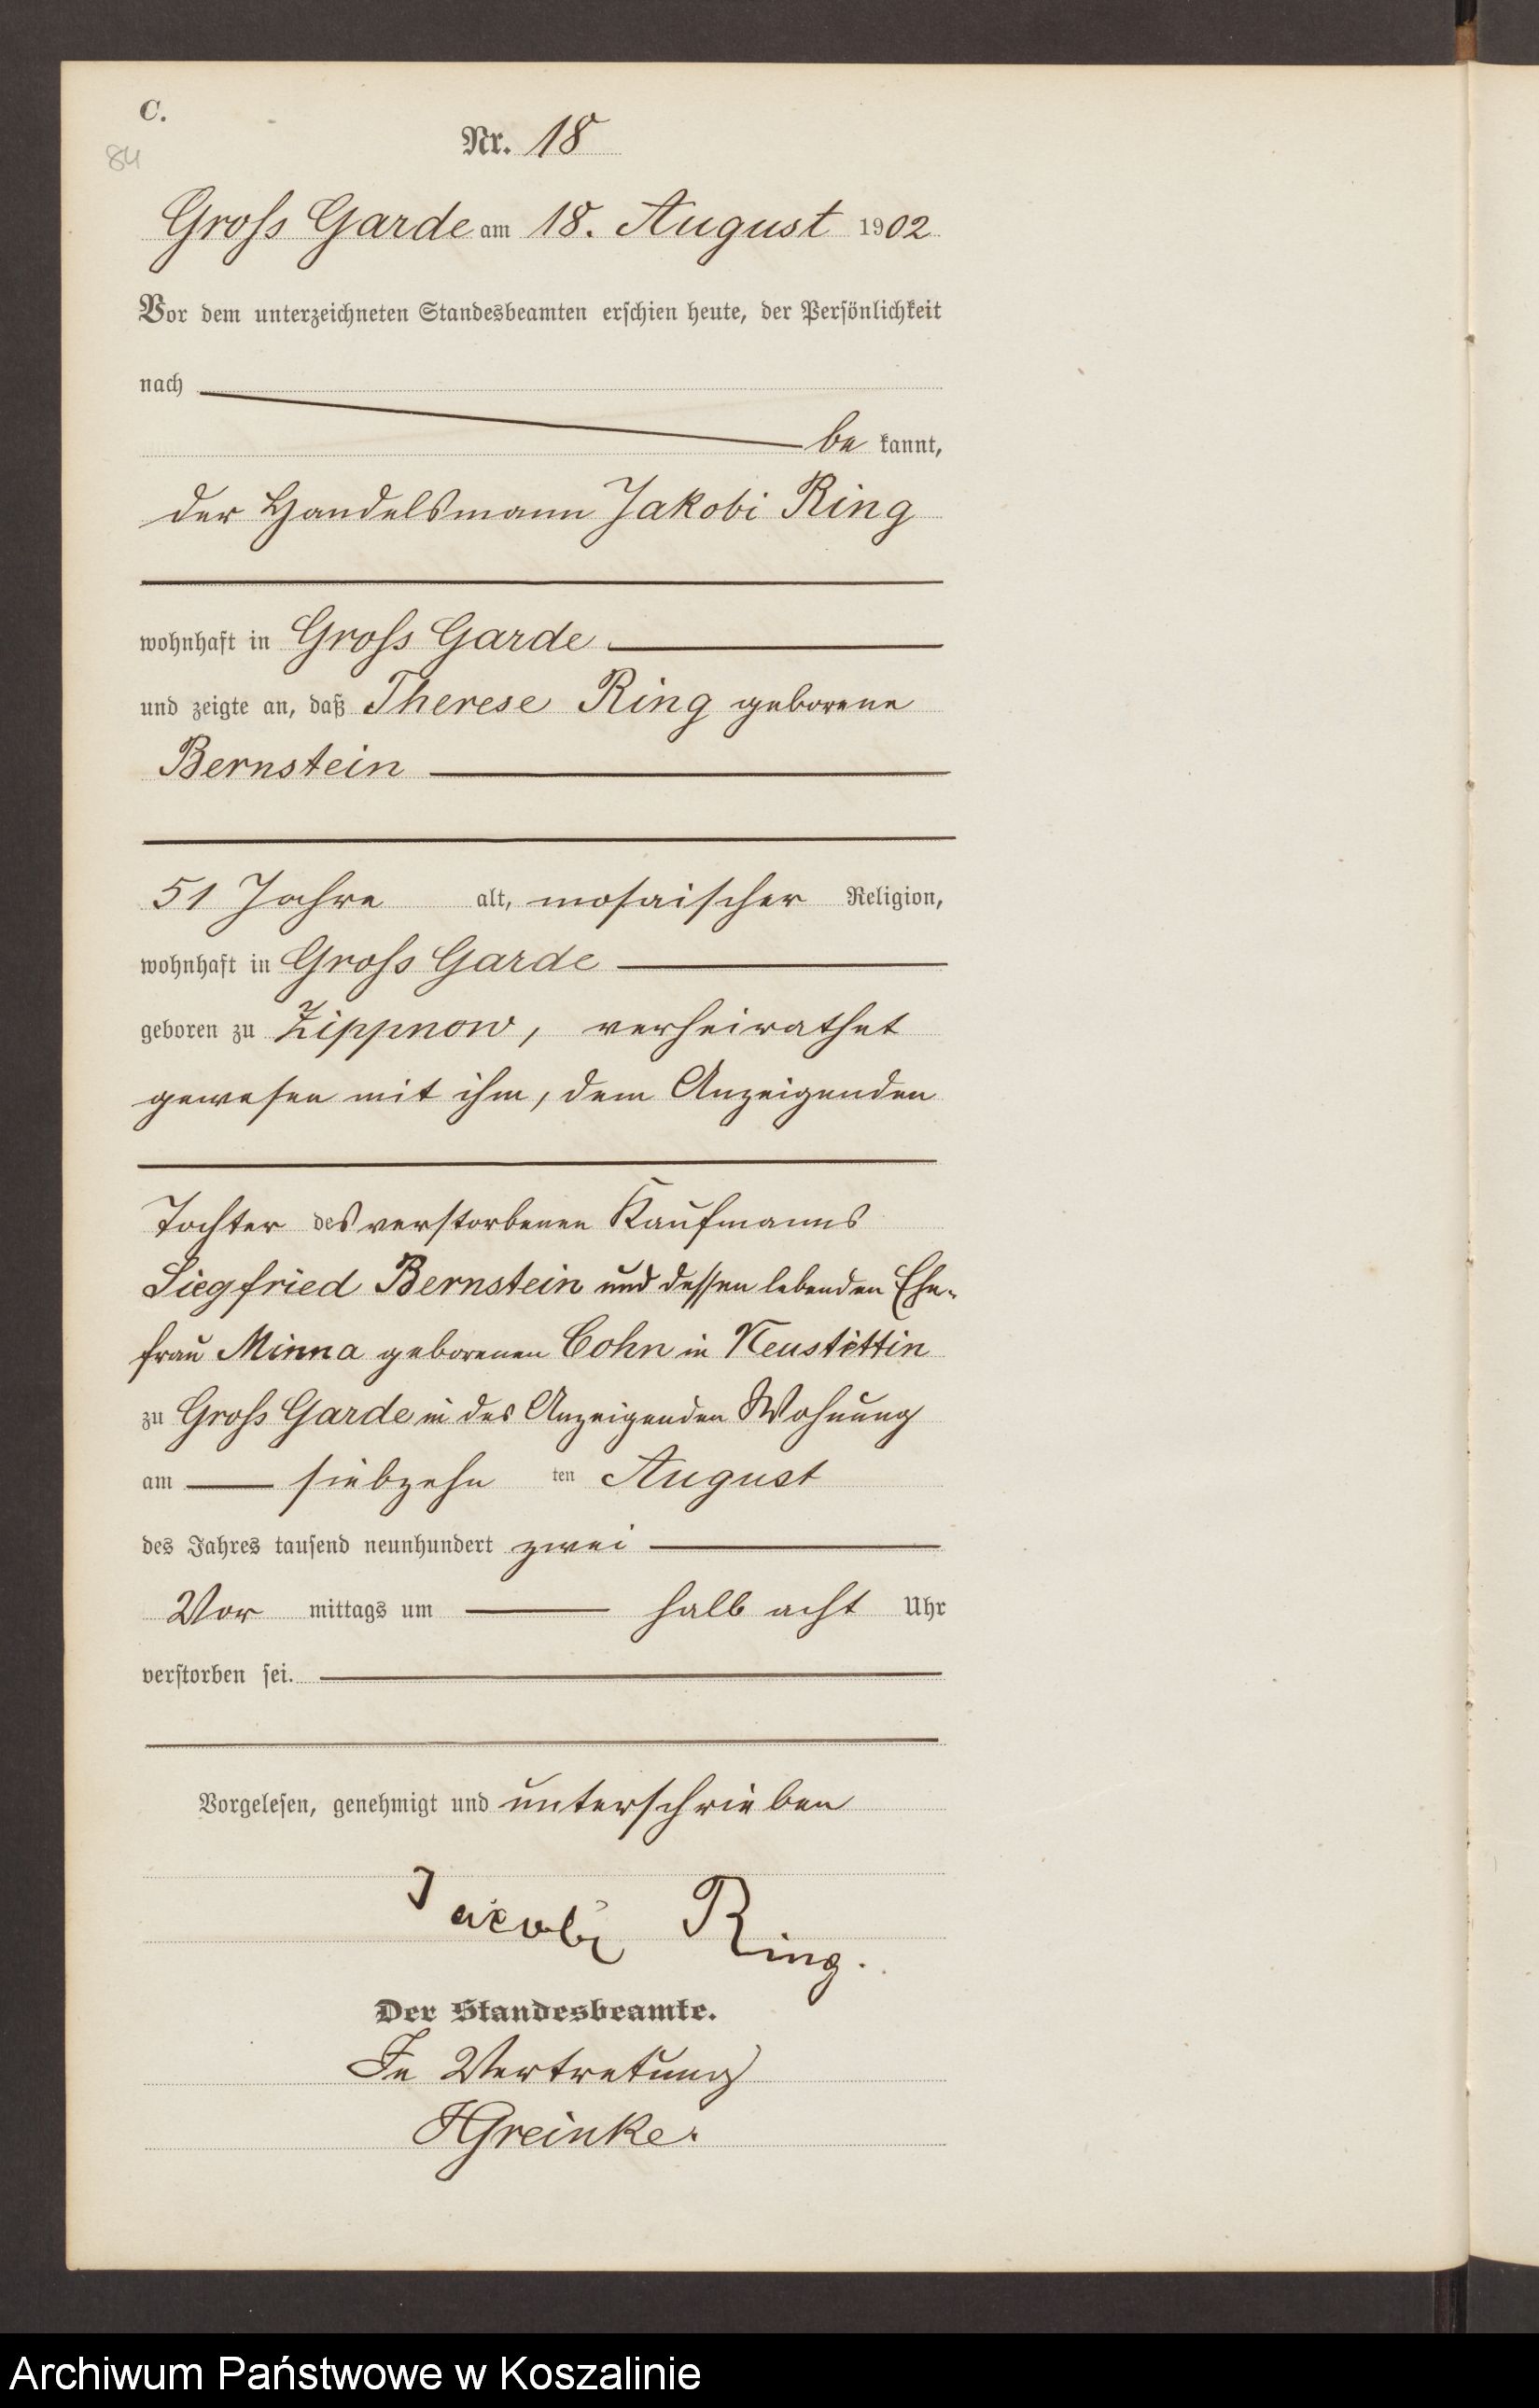 C.
84
Nr. 18
Gross Garde am 18. August 1902
Vor dem unterzeichneten Standesbeamten erschien heute, der Persönlichkeit
nach
be kannt,
der Handelsmann Jakobi Ring
wohnhaft in Gross Garde
und zeigte an, daß Therese Ring geborene
Bernstein
51 Jahre alt, mosaischer Religion,
wohnhaft in Gross Garde
geboren zu Zippnow, verheirathet
gewesen mit ihm, dem Anzeigenden
Tochter des verstorbenen Kaufmanns
Siegfried Bernstein und dessen lebenden Ehe-
frau Minna geborenen Cohn in Neustettin
zu Gross Garde in des Anzeigenden Wohnung
am siebzehn ten August
des Jahres tausend neunhundert zwei
Vor mittags um halb acht Uhr
verstorben sei.
Vorgelesen, genehmigt und unterschrieben
Jacobi Ring.
Der Standesbeamte.
In Vertretung
HGreinke.
Archiwum Państwowe w Koszalinie